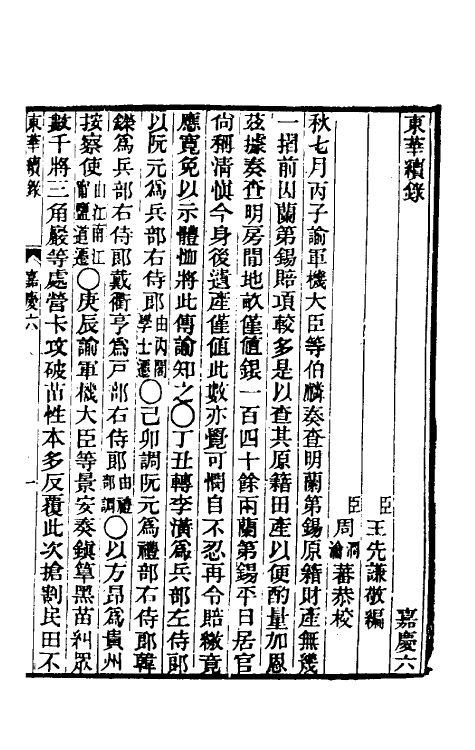 東華續錄
嘉慶六
臣王先謙敬編
臣周潤蕃瀹蕃恭校
秋七月丙子諭軍機大臣等伯麟奏查明蘭第錫原籍財產無幾
一摺前因蘭第錫賠項較多是以查其原籍田產以便酌量加恩
茲據奏查明房間地畝僅值銀一百四十餘兩蘭第錫平日居官
尙稱清愼今身後遺產僅值此數亦覺可憫自不忍再令賠繳竟
應寬免以示體恤將此傳諭知之○丁丑轉李潢爲兵部左侍郎
以阮元爲兵部右侍郎由內閣學士遷○己卯調阮元爲禮部右侍郎韓
鑅爲兵部右侍郎戴衢亨爲戸部右侍郎由禮部調○以方昂爲貴州
按察使由江南江南鹽道遷○庚辰諭軍機大臣等景安奏鎭筸黑苗糾眾
數千將三角巖等處營卡攻破苗性本多反覆此次搶割民田不
東華續錄
嘉慶六
一